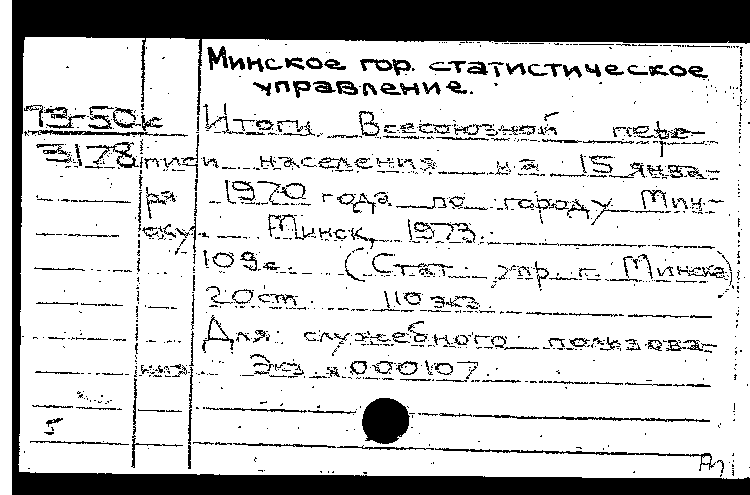 Минское гор. статистическое
управление.
73-50к Итоги Всесоюзной пере-
3178 писи населения на 15 янва-
ря 1970 года по городу Мин-
ску. Минск, 1973.
109с. (Стат. упр. г. Минска)
20см. 110 экз.
Для служебного пользова-
ния. Экз. № 000107.
5